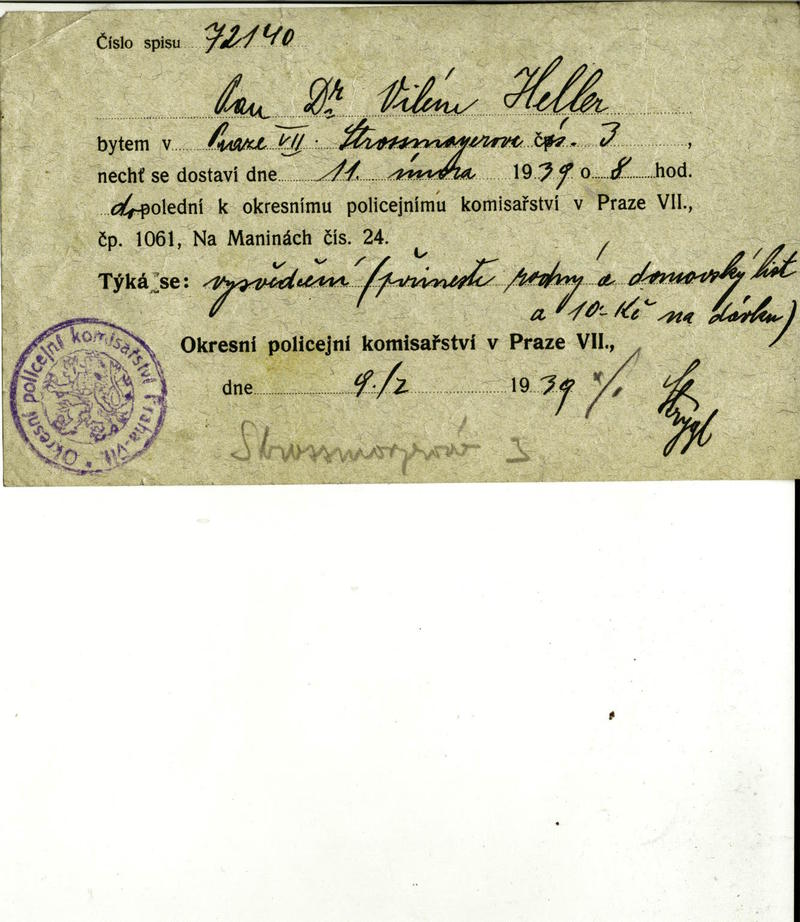 Číslo spisu 72140
Pan Dr Vilém Heller
bytem v Praze VII. Strossmayerova čís. 3,
nechť se dostaví dne 11. února 1939 o 8 hod.
dopolední k okresnímu policejnímu komisařství v Praze VII.,
čp. 1061, Na Maninách čís. 24.
Týká se: vysvědčení (přineste rodný a domovský list
a 10.- Kč na dávku)
Okresní policejní komisařství v Praze VII.,
dne 9./2 1939
Strossmayerova 3
Okresní policejní komisařství Praha-VII.